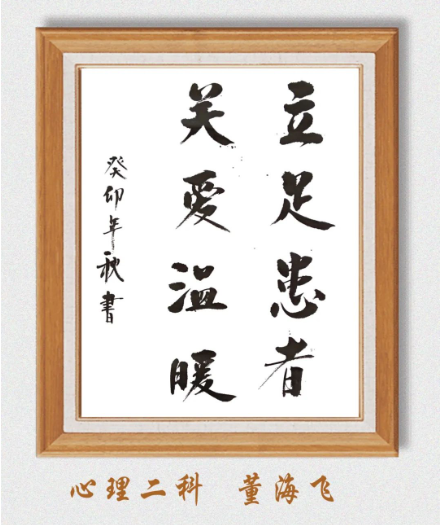 立足患者
关爱温暖
癸卯年秋書
心理二科 董海飞